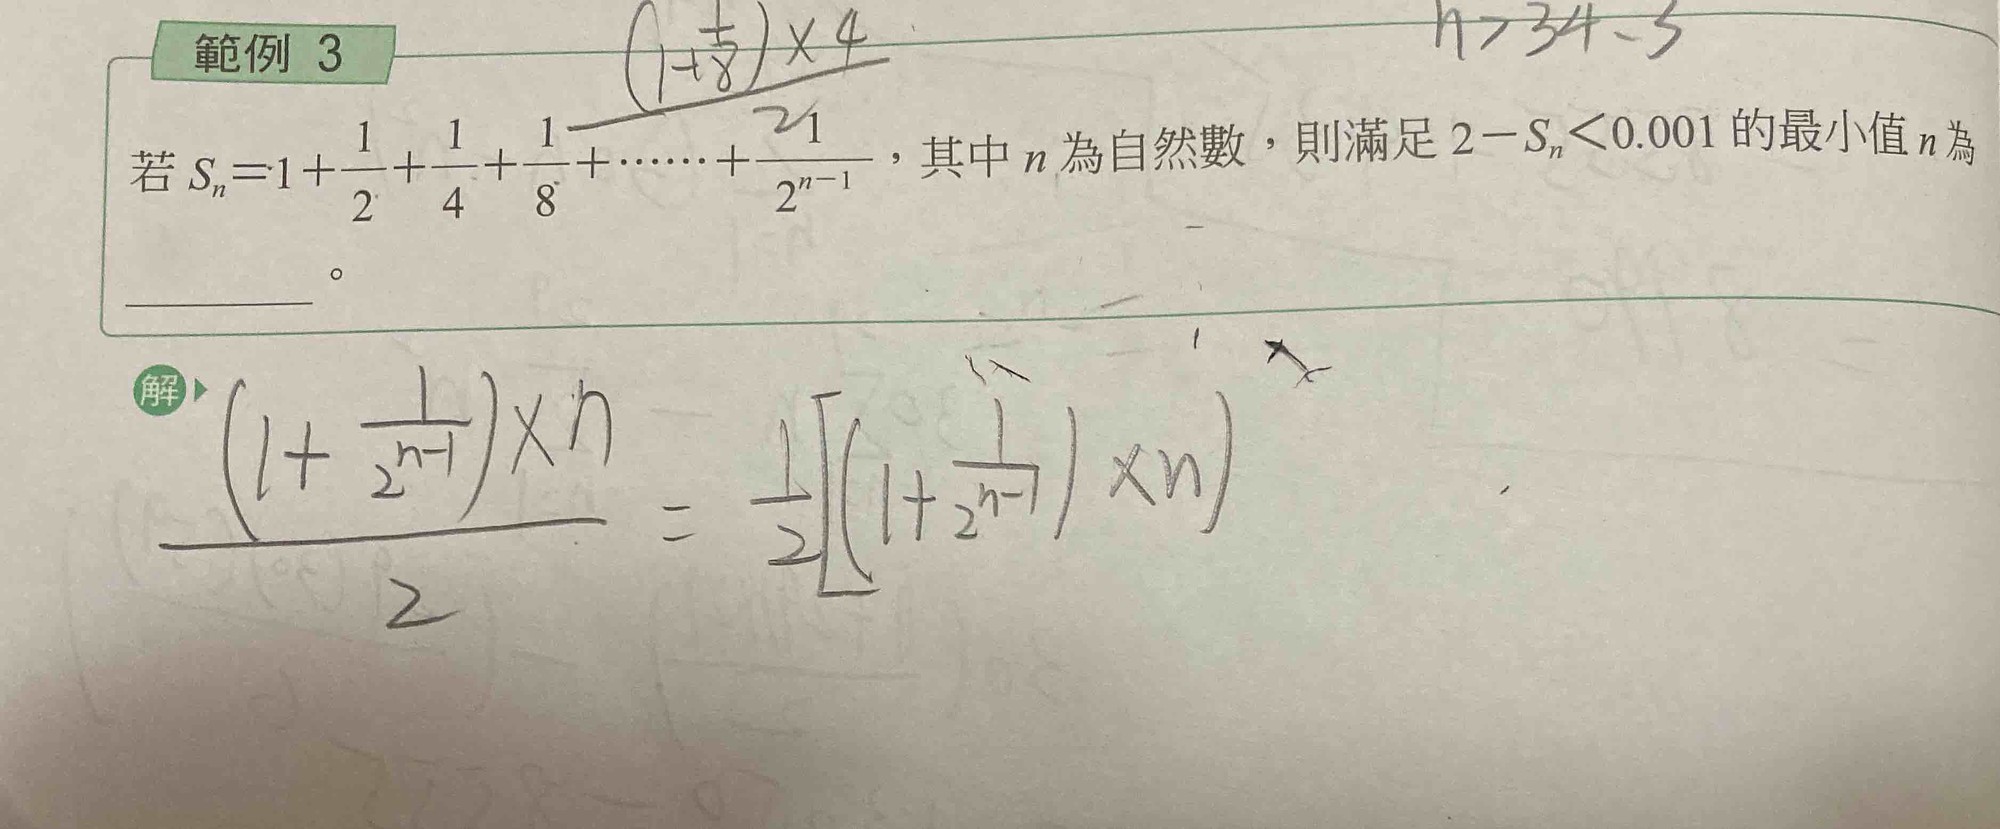 (1+1/8)×4/2
n>34.5
範例 3
若 Sₙ=1+1/2+1/4+1/8+……+1/2ⁿ⁻¹，其中 n 為自然數，則滿足 2－Sₙ＜0.001 的最小值 n 為
______。
解 (1+1/2ⁿ⁻¹)×n/2 = 1/2[(1+1/2ⁿ⁻¹)×n)